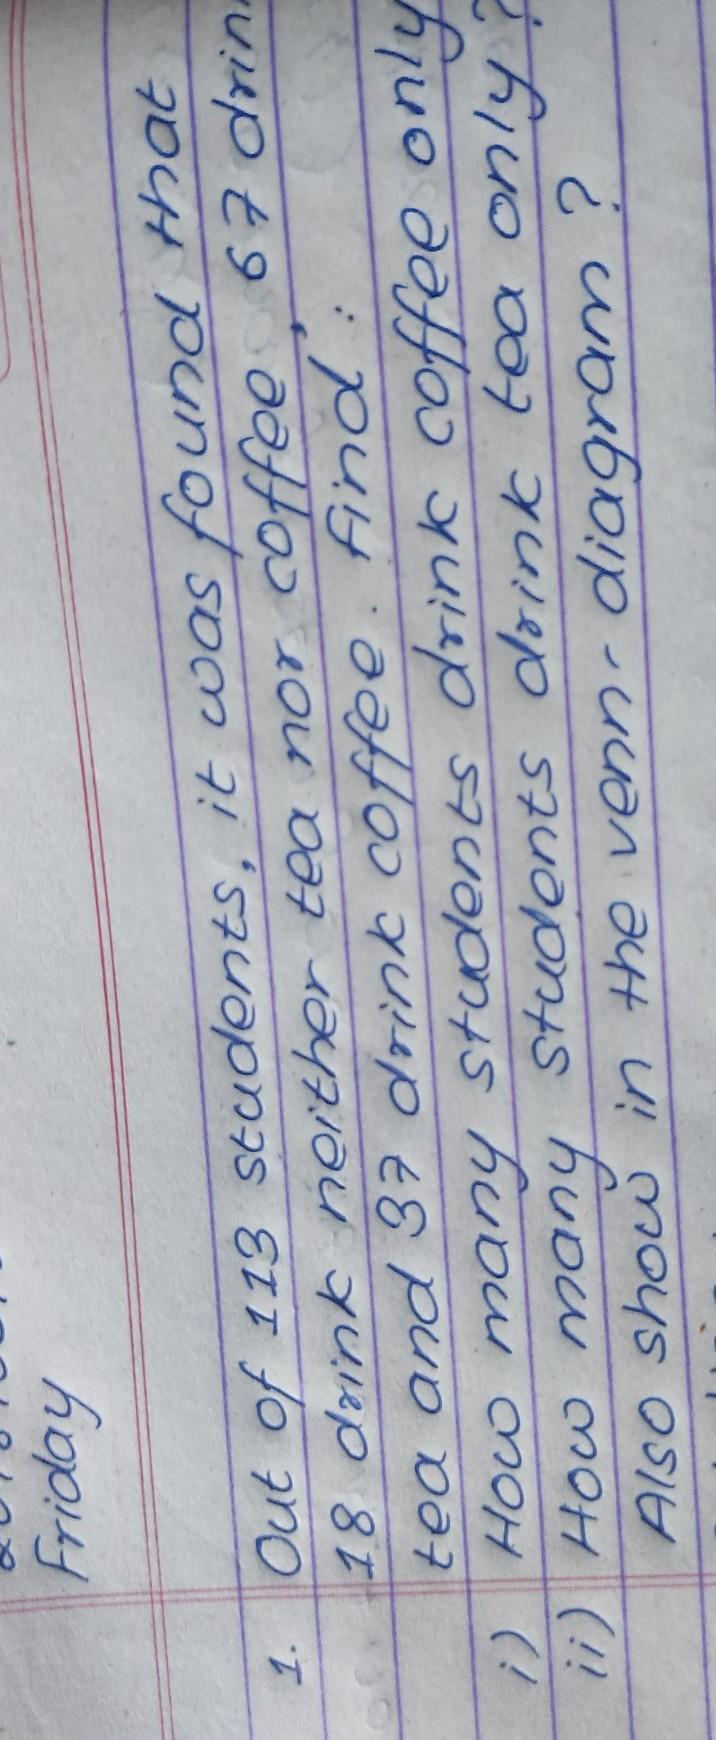 Friday
1. Out of 113 students, it was found that
18 drink neither tea nor coffee, 67 drin
tea and 37 drink coffee. Find:
i) How many students drink coffee only
ii) How many students drink tea only?
Also show in the venn-diagram?